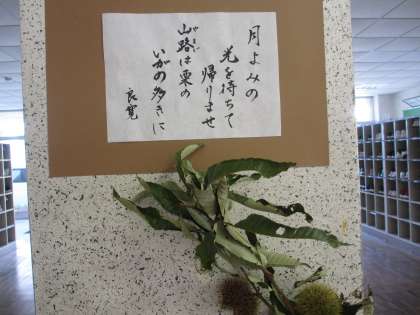 月よみの
光を待ちて
帰りませ
山路は栗の
いがの多きに
良寛